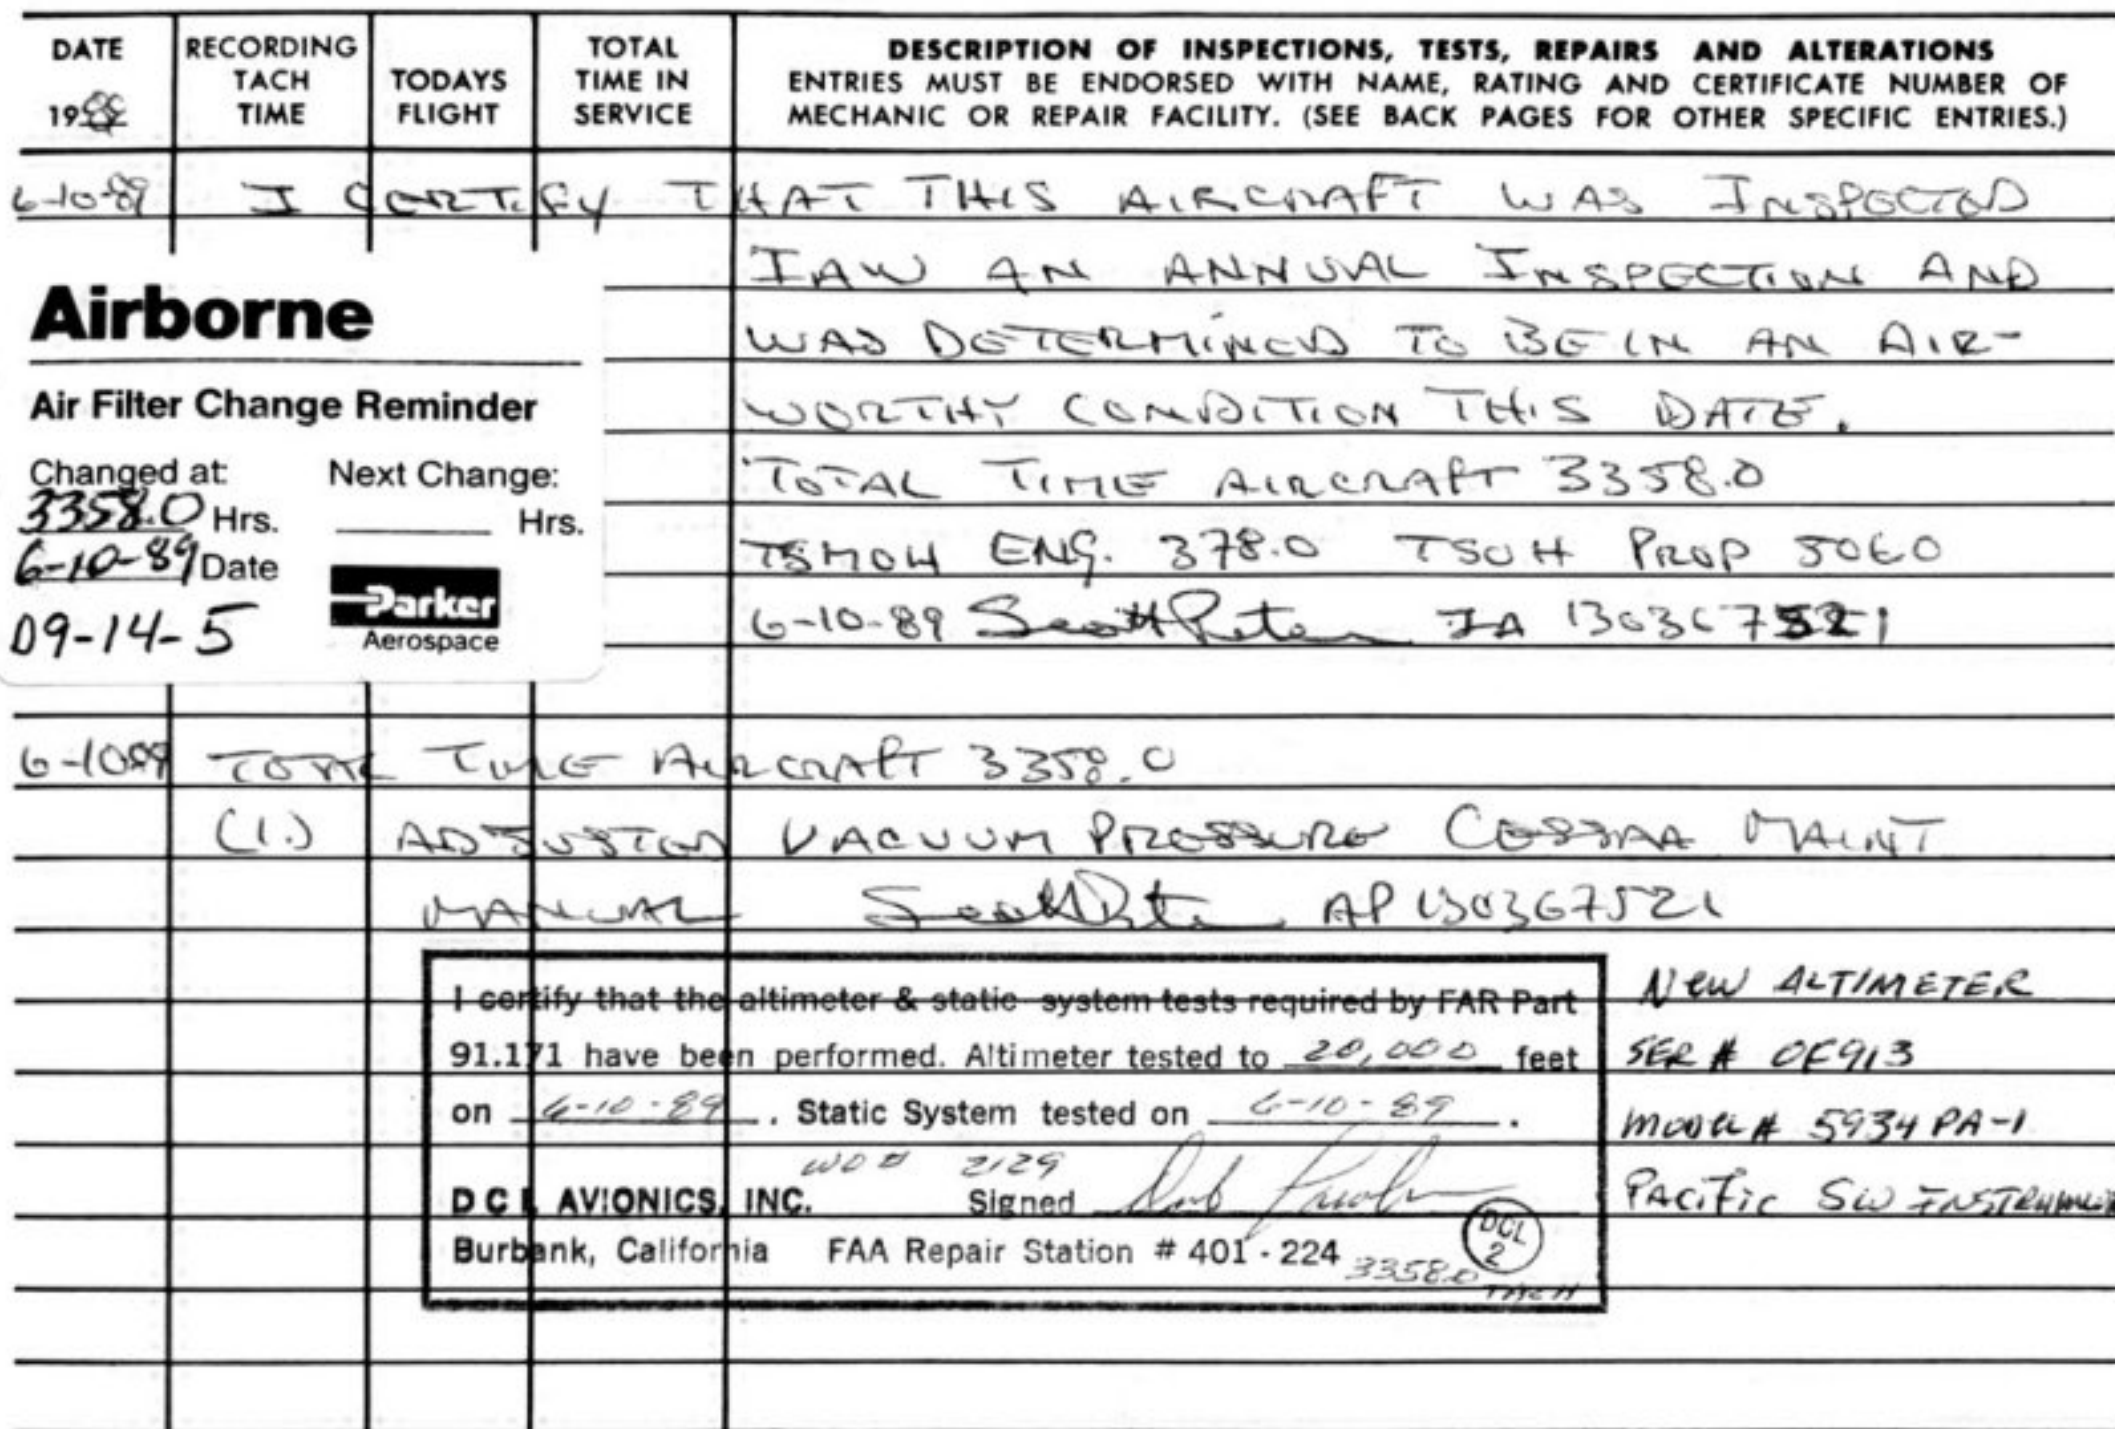 DATE 19
RECORDING TACH TIME
TODAYS FLIGHT
TOTAL TIME IN SERVICE
DESCRIPTION OF INSPECTIONS, TESTS, REPAIRS AND ALTERATIONS
ENTRIES MUST BE ENDORSED WITH NAME, RATING AND CERTIFICATE NUMBER OF
MECHANIC OR REPAIR FACILITY. (SEE BACK PAGES FOR OTHER SPECIFIC ENTRIES.)
6-10-89 I CERTIFY THAT THIS AIRCRAFT WAS INSPECTED
IAW AN ANNUAL INSPECTION AND
WAS DETERMINED TO BE IN AN AIR-
WORTHY CONDITION THIS DATE.
TOTAL TIME AIRCRAFT 3358.0
TSMOH ENG. 378.0 TSOH PROP
6-10-89 Scott IA
Airborne
Air Filter Change Reminder
Changed at: Next Change:
3358.0 Hrs. Hrs.
6-10-89 Date
D9-14-5
Parker
Aerospace
6-10-89 TOTAL TIME AIRCRAFT 3358.0
(1.) ADJUSTED VACUUM PRESSURE CESSNA MAINT
MANUAL Scott AP 130367521
I certify that the altimeter & static system tests required by FAR Part
91.171 have been performed. Altimeter tested to 20,000 feet
on 6-10-89. Static System tested on 6-10-89.
WO# 2129
D C L AVIONICS, INC. Signed
Burbank, California FAA Repair Station # 401-224
DCL 2
3358.0 TACH
NEW ALTIMETER
SER # OF913
MODEL # 5934 PA-1
PACIFIC SW INSTRUMENT